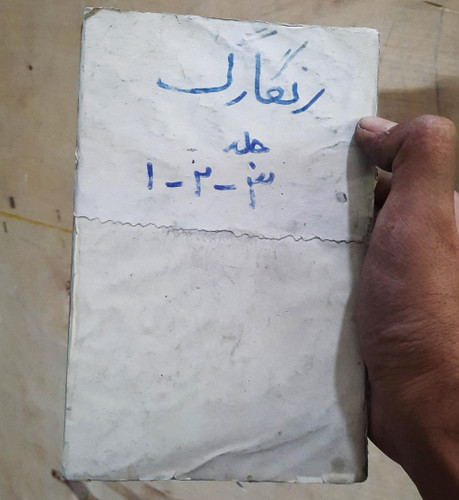 رنگارگ
جلد
۱-۲-۳